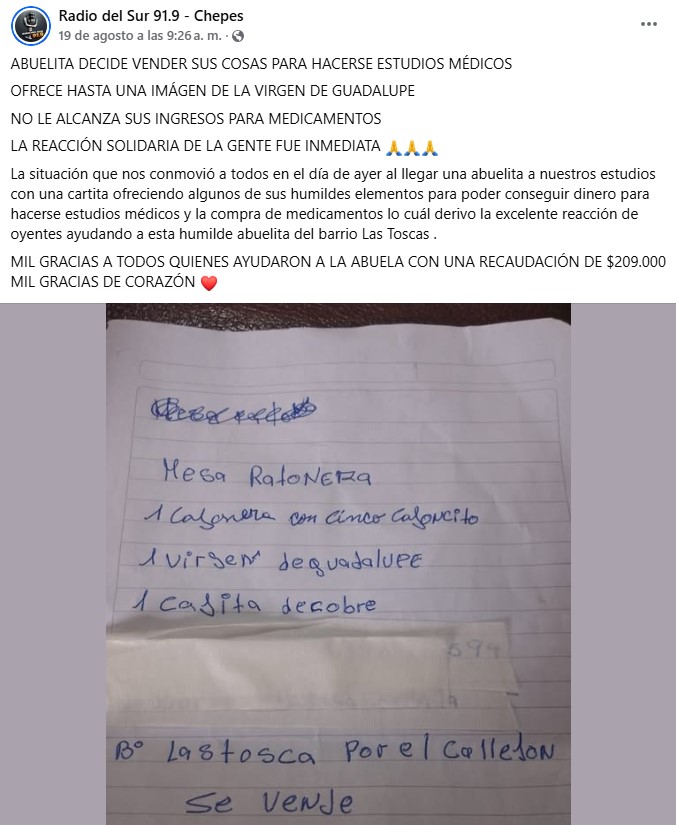 Radio del Sur 91.9 - Chepes
19 de agosto a las 9:26 a. m. ·
ABUELITA DECIDE VENDER SUS COSAS PARA HACERSE ESTUDIOS MÉDICOS
OFRECE HASTA UNA IMÁGEN DE LA VIRGEN DE GUADALUPE
NO LE ALCANZA SUS INGRESOS PARA MEDICAMENTOS
LA REACCIÓN SOLIDARIA DE LA GENTE FUE INMEDIATA 🙏🙏🙏
La situación que nos conmovió a todos en el día de ayer al llegar una abuelita a nuestros estudios
con una cartita ofreciendo algunos de sus humildes elementos para poder conseguir dinero para
hacerse estudios médicos y la compra de medicamentos lo cuál derivo la excelente reacción de
oyentes ayudando a esta humilde abuelita del barrio Las Toscas .
MIL GRACIAS A TODOS QUIENES AYUDARON A LA ABUELA CON UNA RECAUDACIÓN DE $209.000
MIL GRACIAS DE CORAZÓN ❤️
Mesa RatoNERA
1 Cajonera con cinco Cajoncito
1 VirgeN deguadaluPE
1 Cajita decobre
Bº Lastosca Por el CallejoN
Se VeNde